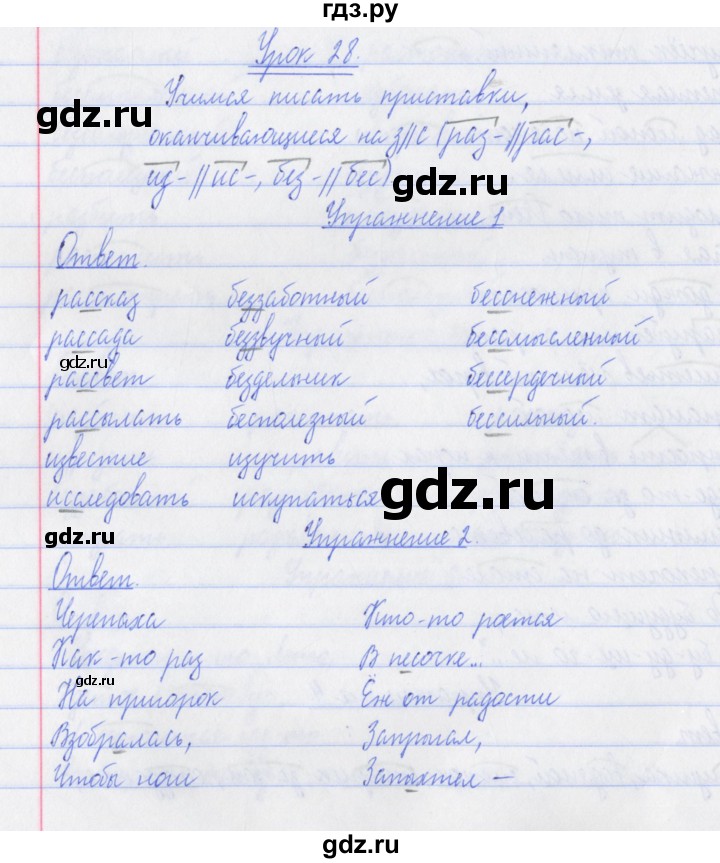 гдз.ру
Урок 28.
gdz.ru
Учимся писать приставки,
gdz.ru
оканчивающиеся на з//с (раз-//рас-,
из-//ис-, без-//бес)
gdz.ru
Упражнение 1
Ответ.
рассказ беззаботный бесснежный
рассада беззвучный бессмысленный
gdz.ru
рассвет бездельник бессердечный
рассылать бесполезный бессильный.
известие изучить
исследовать искупаться
gdz.ru
gdz.ru
Упражнение 2.
Ответ.
Черепаха Кто-то роется
Как-то раз В песочке...
gdz.ru
На пригорок Ёж от радости
Взобралась, Запрыгал,
Чтобы нош Запыхтел —
gdz.ru
gdz.ru
gdz.ru